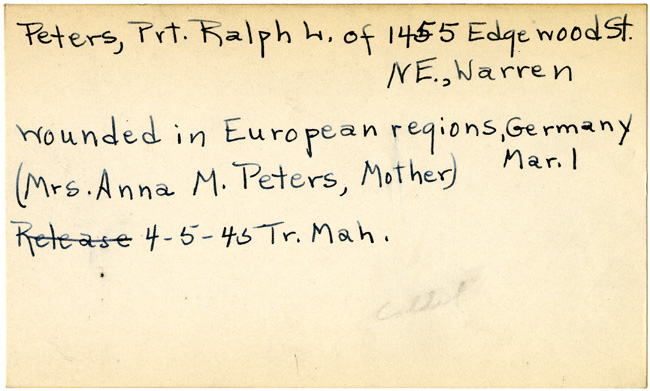 Peters, Prt. Ralph L. of 1455 Edgewood St.
NE., Warren
wounded in European regions, Germany
Mar. 1
(Mrs. Anna M. Peters, Mother)
Release 4-5-45 Tr. Mah.